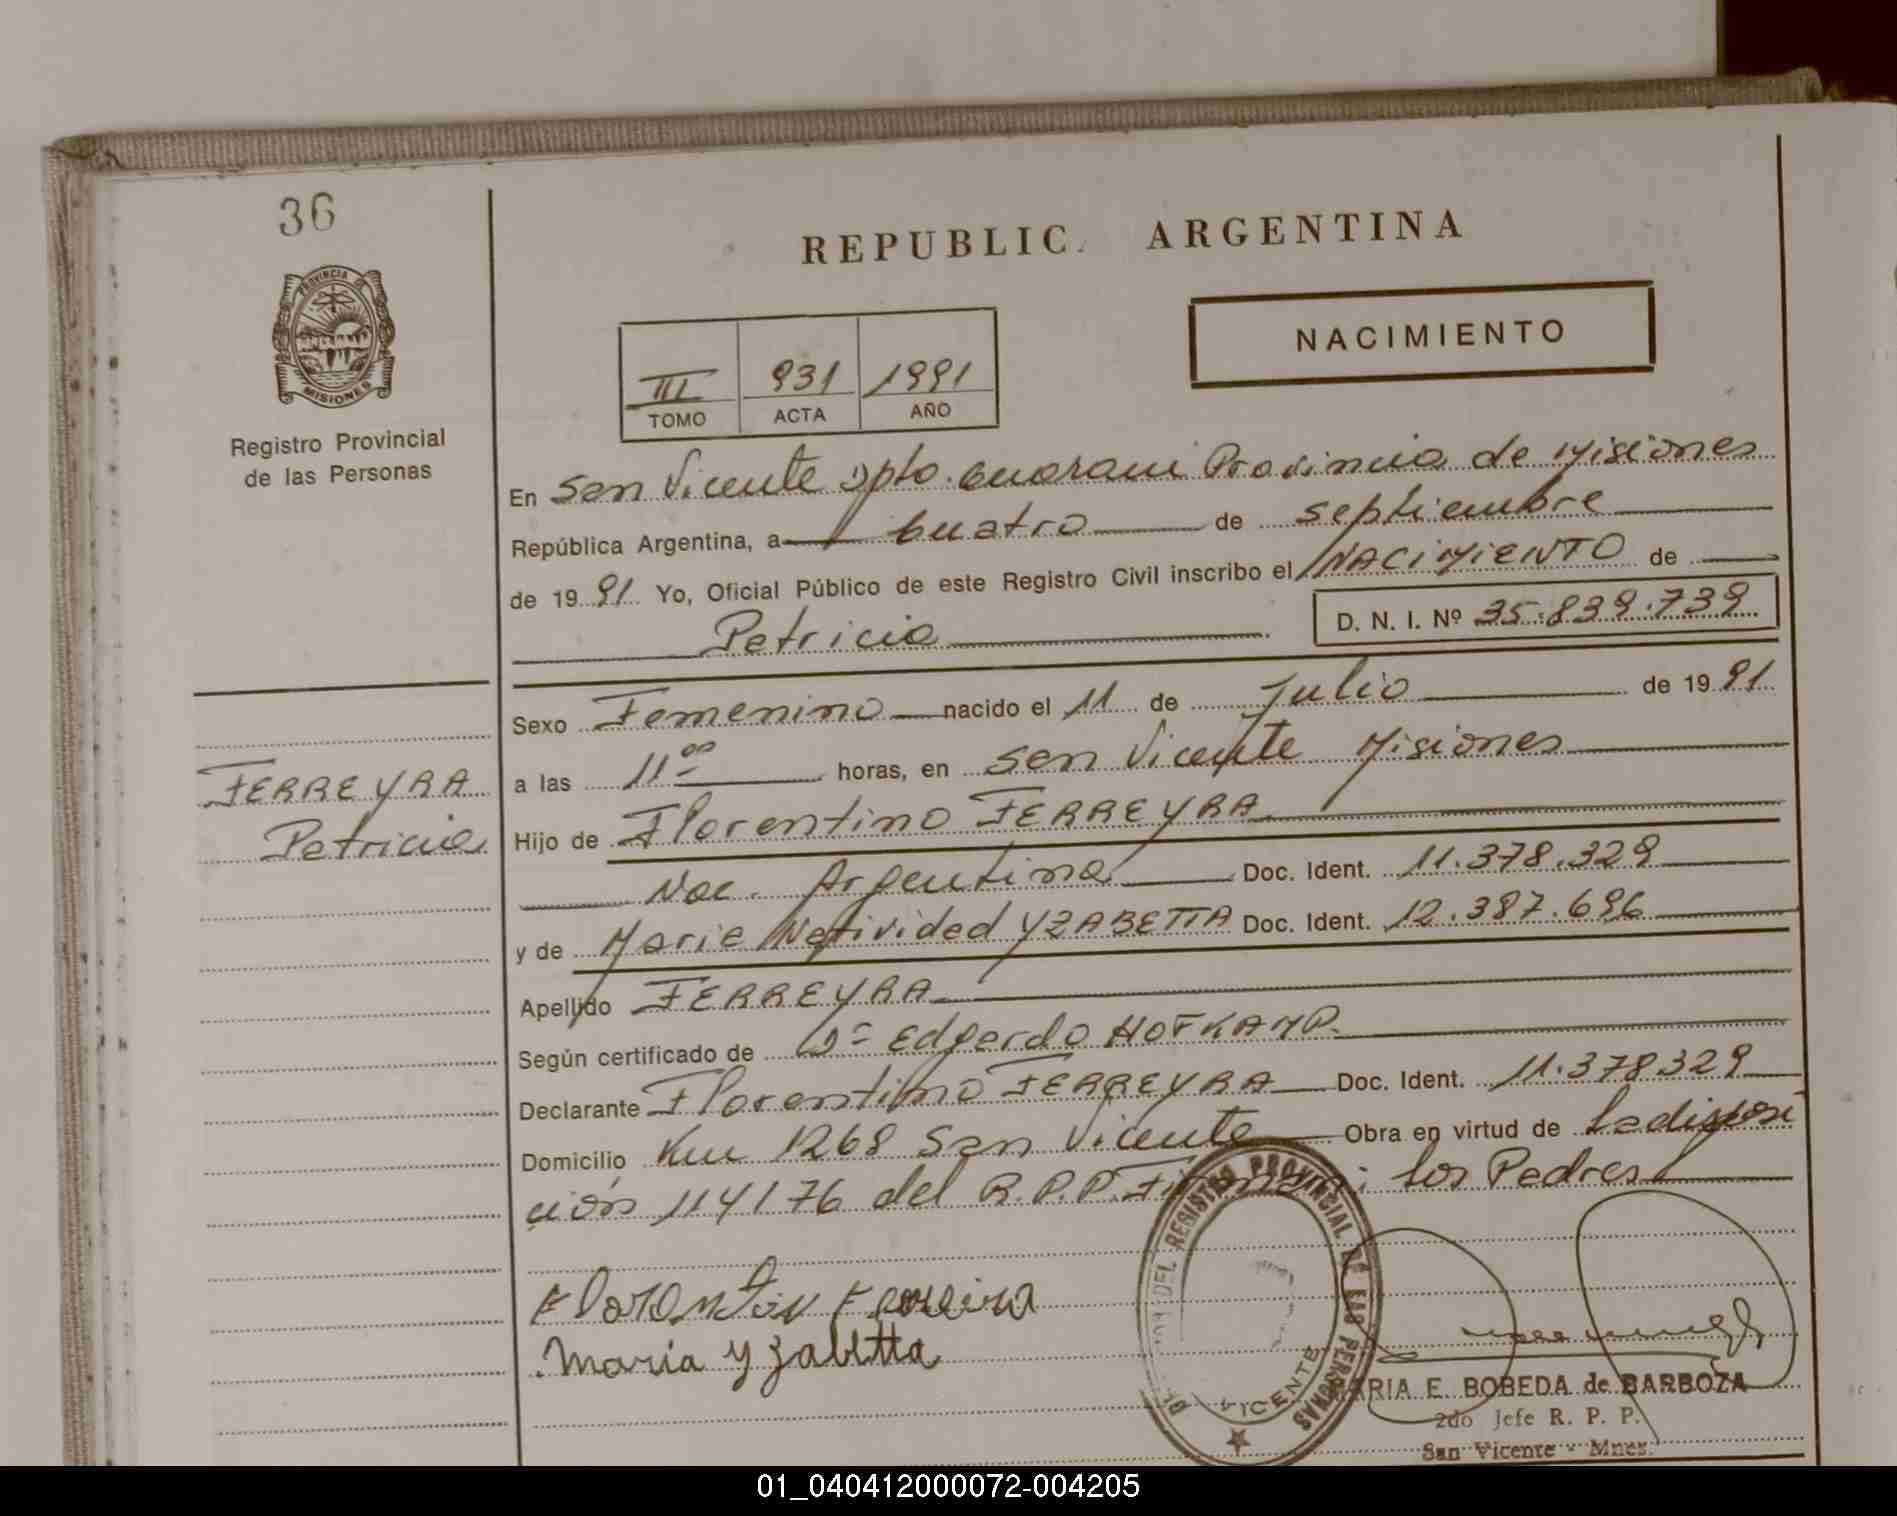 36
PROVINCIA DE
MISIONES
Registro Provincial
de las Personas
REPUBLIC. ARGENTINA
NACIMIENTO
III 931 1991
TOMO ACTA AÑO
En San Vicente Dpto. Guarani Provincia de Misiones
República Argentina, a cuatro de septiembre
de 1991 Yo, Oficial Público de este Registro Civil inscribo el NACIMIENTO de
Patricia D. N. I. Nº 35.839.739
Sexo Femenino nacido el 11 de Julio de 1991
a las 11 00 horas, en San Vicente Misiones
FERREYRA
Patricia
Hijo de Florentino FERREYRA
Nac. Argentina Doc. Ident. 11.378.329
y de Maria Natividad YZABETTA Doc. Ident. 12.387.696
Apellido FERREYRA
Según certificado de Dr Edgardo HOFKAMP.
Declarante Florentino FERREYRA Doc. Ident. 11.378.329
Domicilio Km 1268 San Vicente Obra en virtud de la disposi
ción 114/76 del R.P.P. Firman: los Padres
REGISTRO PROVINCIAL DE LAS PERSONAS
VICENTE
Maria yzabetta
MARIA E. BOBEDA de BARBOZA
2do Jefe R. P. P.
San Vicente - Mnes.
01_040412000072-004205